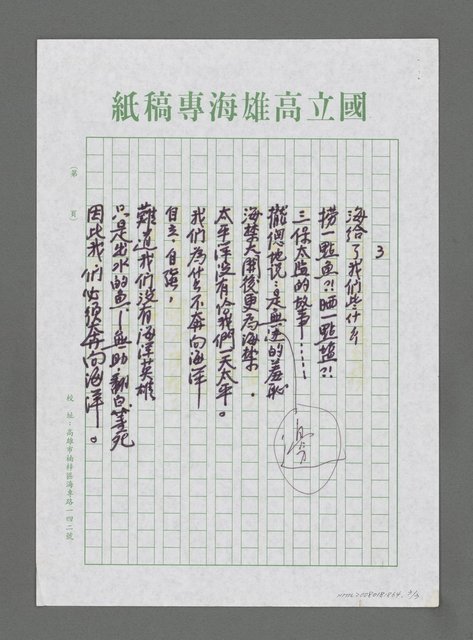 國立高雄海專稿紙
（第 頁）
3
海給了我們些什么
撈一點魚?!晒一點塩?!
三保太监的故事……
攏總地說：是無边的羞恥
海禁大開後更為海禁．
太平洋沒有給我們一天太平。
我們為什么不奔向海洋
自立．自強，
難道我們沒有海洋英雄
只是出水的魚——無助．翻白等死
因此我們必須奔向海洋。
邊
校址：高雄市楠梓區海專路一四二號